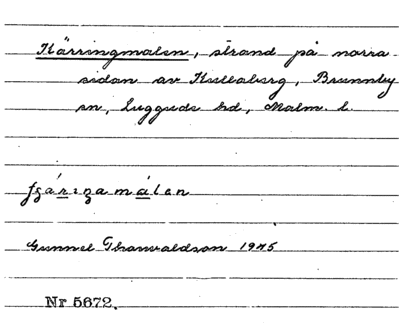 Kärringmalen, strand på norra
sidan av Kullaberg, Brunnby
sn, Luggude hd, Malm. l.
Gunnel Thorvaldson 1975
Nr 5672.